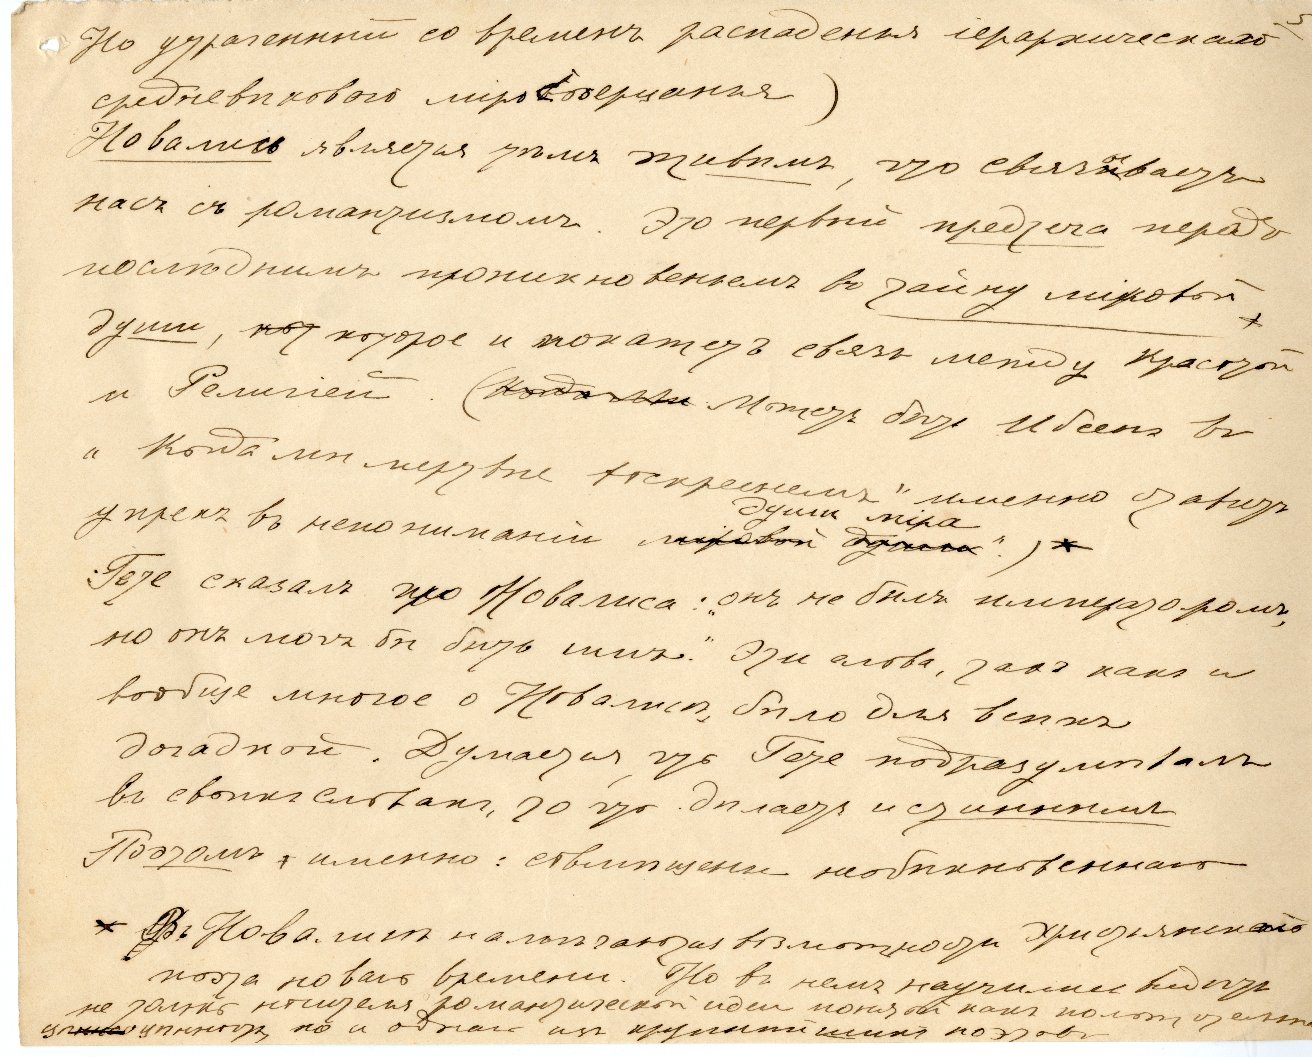 Но утраченный со временъ распаденья іерархическаго
средневѣковаго міросозерцанья)
Новалисъ является тѣмъ живымъ, что связываетъ
насъ съ романтизмомъ. Это первый предтеча передъ
послѣднимъ проникновеньемъ въ тайну міровой
души, кот которое и покажетъ связь между Красотой
и Религіей. (Когда мы Можетъ быть Ибсенъ въ
„Когда мы мертвые воскреснемъ" именно ставитъ
упрекъ въ непониманіи міровой души души міра".) *
Гете сказалъ про Новалиса: „онъ не былъ императоромъ,
но онъ могъ бы быть имъ." Эти слова, такъ какъ и
вообще многое о Новалисѣ, было для всѣхъ
догадкой. Думается, что Гете подразумѣвалъ
въ своихъ словахъ, то что дѣлаетъ истиннымъ
Поэтомъ, именно: совмѣщенье необыкновеннаго
* Въ Новалисѣ намѣчаются возможности Христьянскаго
поэта новаго времени. Но въ немъ научились видѣть
не только носителя романтической идеи понятой какъ положительная
цѣнность но и однаго изъ крупнѣйшихъ поэтовъ